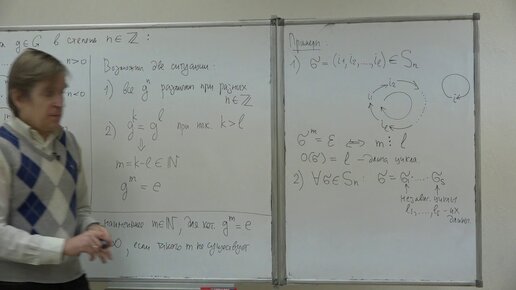 g∈G в степени n∈ℤ:
n>0
n<0
Возможны две ситуации:
1) все gⁿ различны при разных
n∈ℤ
2) gᵏ = gˡ при нек. k>l
⇓
m=k-l∈ℕ
gᵐ = e
наименьшее m∈ℕ, для кот. gᵐ = e
если такого m не существует
Примеры:
1) σ = (i₁, i₂, ..., iₗ) ∈ Sₙ
i₁ i₂
iₗ
i
σᵐ = ε ⟺ m ⋮ l
O(σ) = l - длина цикла
2) ∀σ∈Sₙ: σ = σ₁·...·σₛ
независ. циклы
l₁,...,lₛ - их
длины